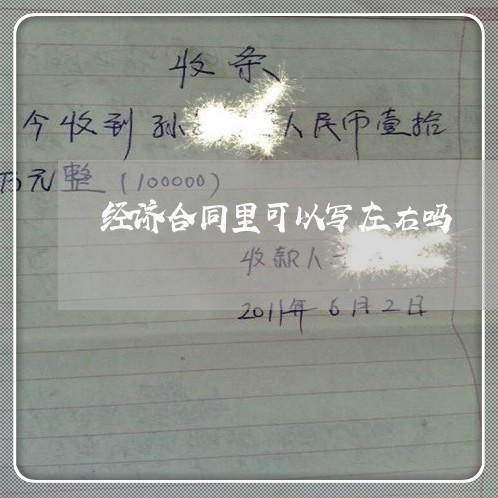 收条
今收到孙 人民币壹拾
万元整（100000）
经济合同里可以写左右吗
收款人
2011年6月2日